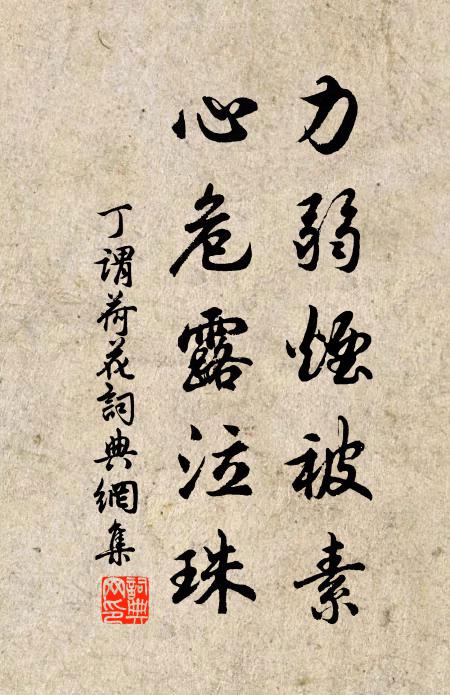 力弱煙被素
心危露泣珠
丁謂荷花詞典網集
詞典網印